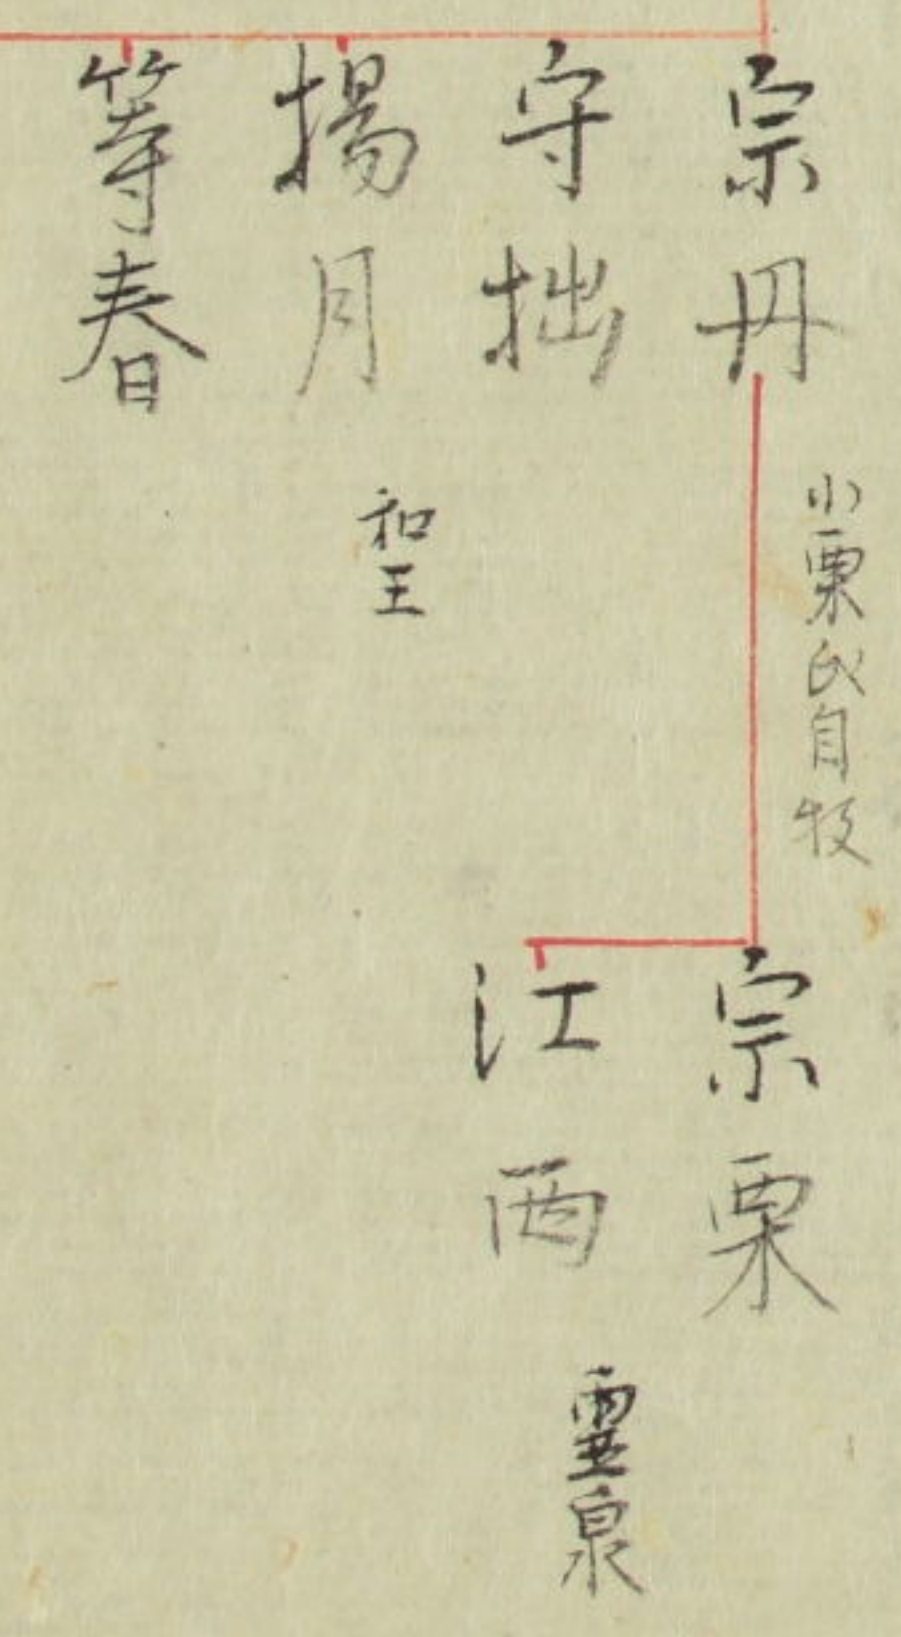 宗丹
小栗氏自牧
守拙
揚月
和玉
等春
宗栗
江西
霊泉